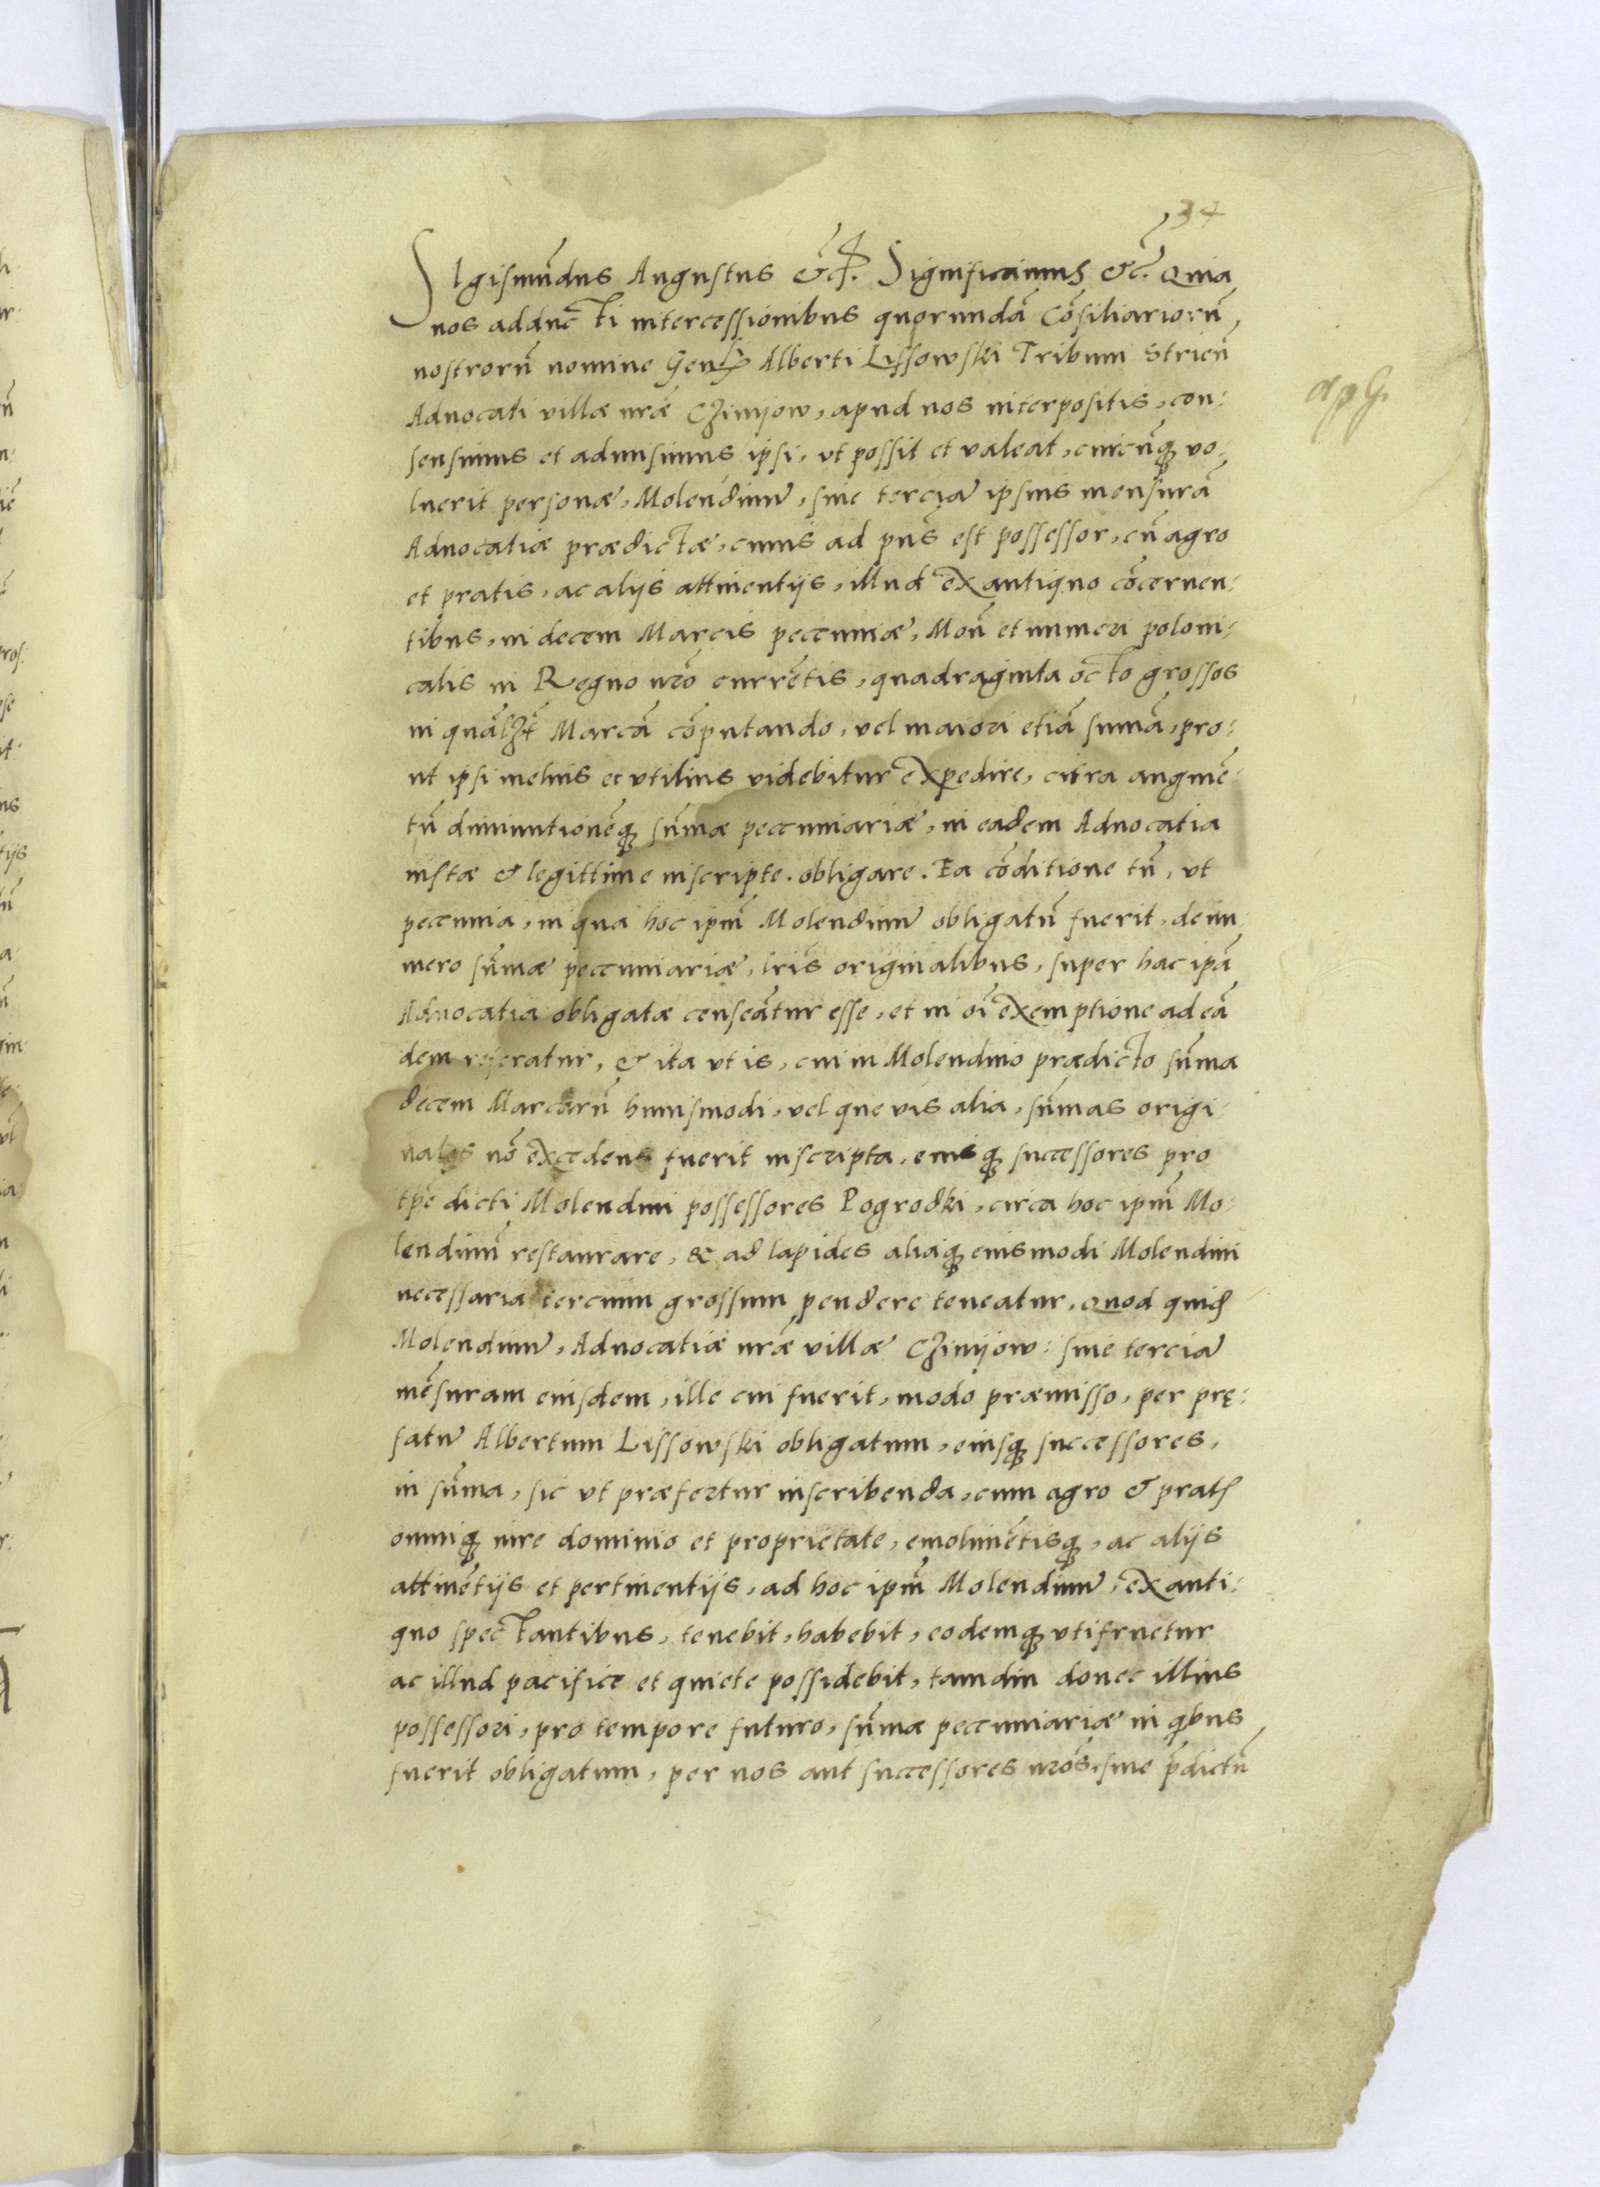 34
Sigismūdus Augustus &c. Significamus &c. Quia
nos adducti intercessionibus quorundā Cōsiliariorū,
nostrorū nomine Alberti Lissowski Tribuni Strień
Aduocati villæ nræ Czinijow, apud nos interpositis, con:
sensimus et admisimus ipsi, vt possit et valeat, cuicūq; vo:
luerit personæ, Molendinū, siue terciā ipsius mensurā
Aduocatiæ prædictæ, cuius ad pñs est possessor, cū agro
et pratis, ac alijs attinentijs, illud ex antiquo cōcernen:
tibus, in decem Marcis pecuniæ, Moń et numeri poloni:
calis in Regno nr̄o currētis, quadraginta octo grossos
in quālzt Marcā cōputando, vel maiori etiā sum̄a, pro:
ut ipsi melius et vtilius videbitur expedire, citra augmē:
tū diminutionēq; sūmæ pecuniariæ, in eadem Aduocatia
iustæ & legittime inscripte. obligare. Ea cōditione tn̄, vt
pecunia, in qua hoc ipm̄ Molendinū obligatū fuerit, de nu:
mero sūmæ pecuniariæ, lris originalibus, super hac ipā
Aduocatia obligatæ censeātur esse, et in oī exemptione ad eā
dem referatur, & ita vt is, cui in Molendino prædicto sūma
decem Marcarū huiusmodi, vel que vis alia, sūmas origi:
nales nō excedens fuerit inscripta, eiusq; successores pro
tpē dicti Molendini possessores Pogrodki, circa hoc ipm̄ Mo:
lendinū restaurare, & ad lapides aliaq; eiusmodi Molendini
necessaria tercium grossum pendere teneatur, Quod quid
Molendinū, Aduocatiæ nræ villæ Czinijow: siue terciā
mēsuram eiusdem, ille cui fuerit, modo præmisso, per prę:
fatū Albertum Lissowski obligatum, eiusq; successores,
in sūma, sic vt præfertur inscribenda, cum agro & pratis
omniq; iure dominio et proprietate, emolimētisq;, ac alijs
attinētijs et pertinentijs, ad hoc ipm̄ Molendinū, ex anti:
quo spectantibus, tenebit, habebit, eodemq; vtifruetur
ac illud pacifice et quiete possidebit, tamdiu donec illius
possessori, pro tempore futuro, sūmæ pecuniariæ in qibus
fuerit obligatum, per nos aut successores nr̄os, siue p̄dictū